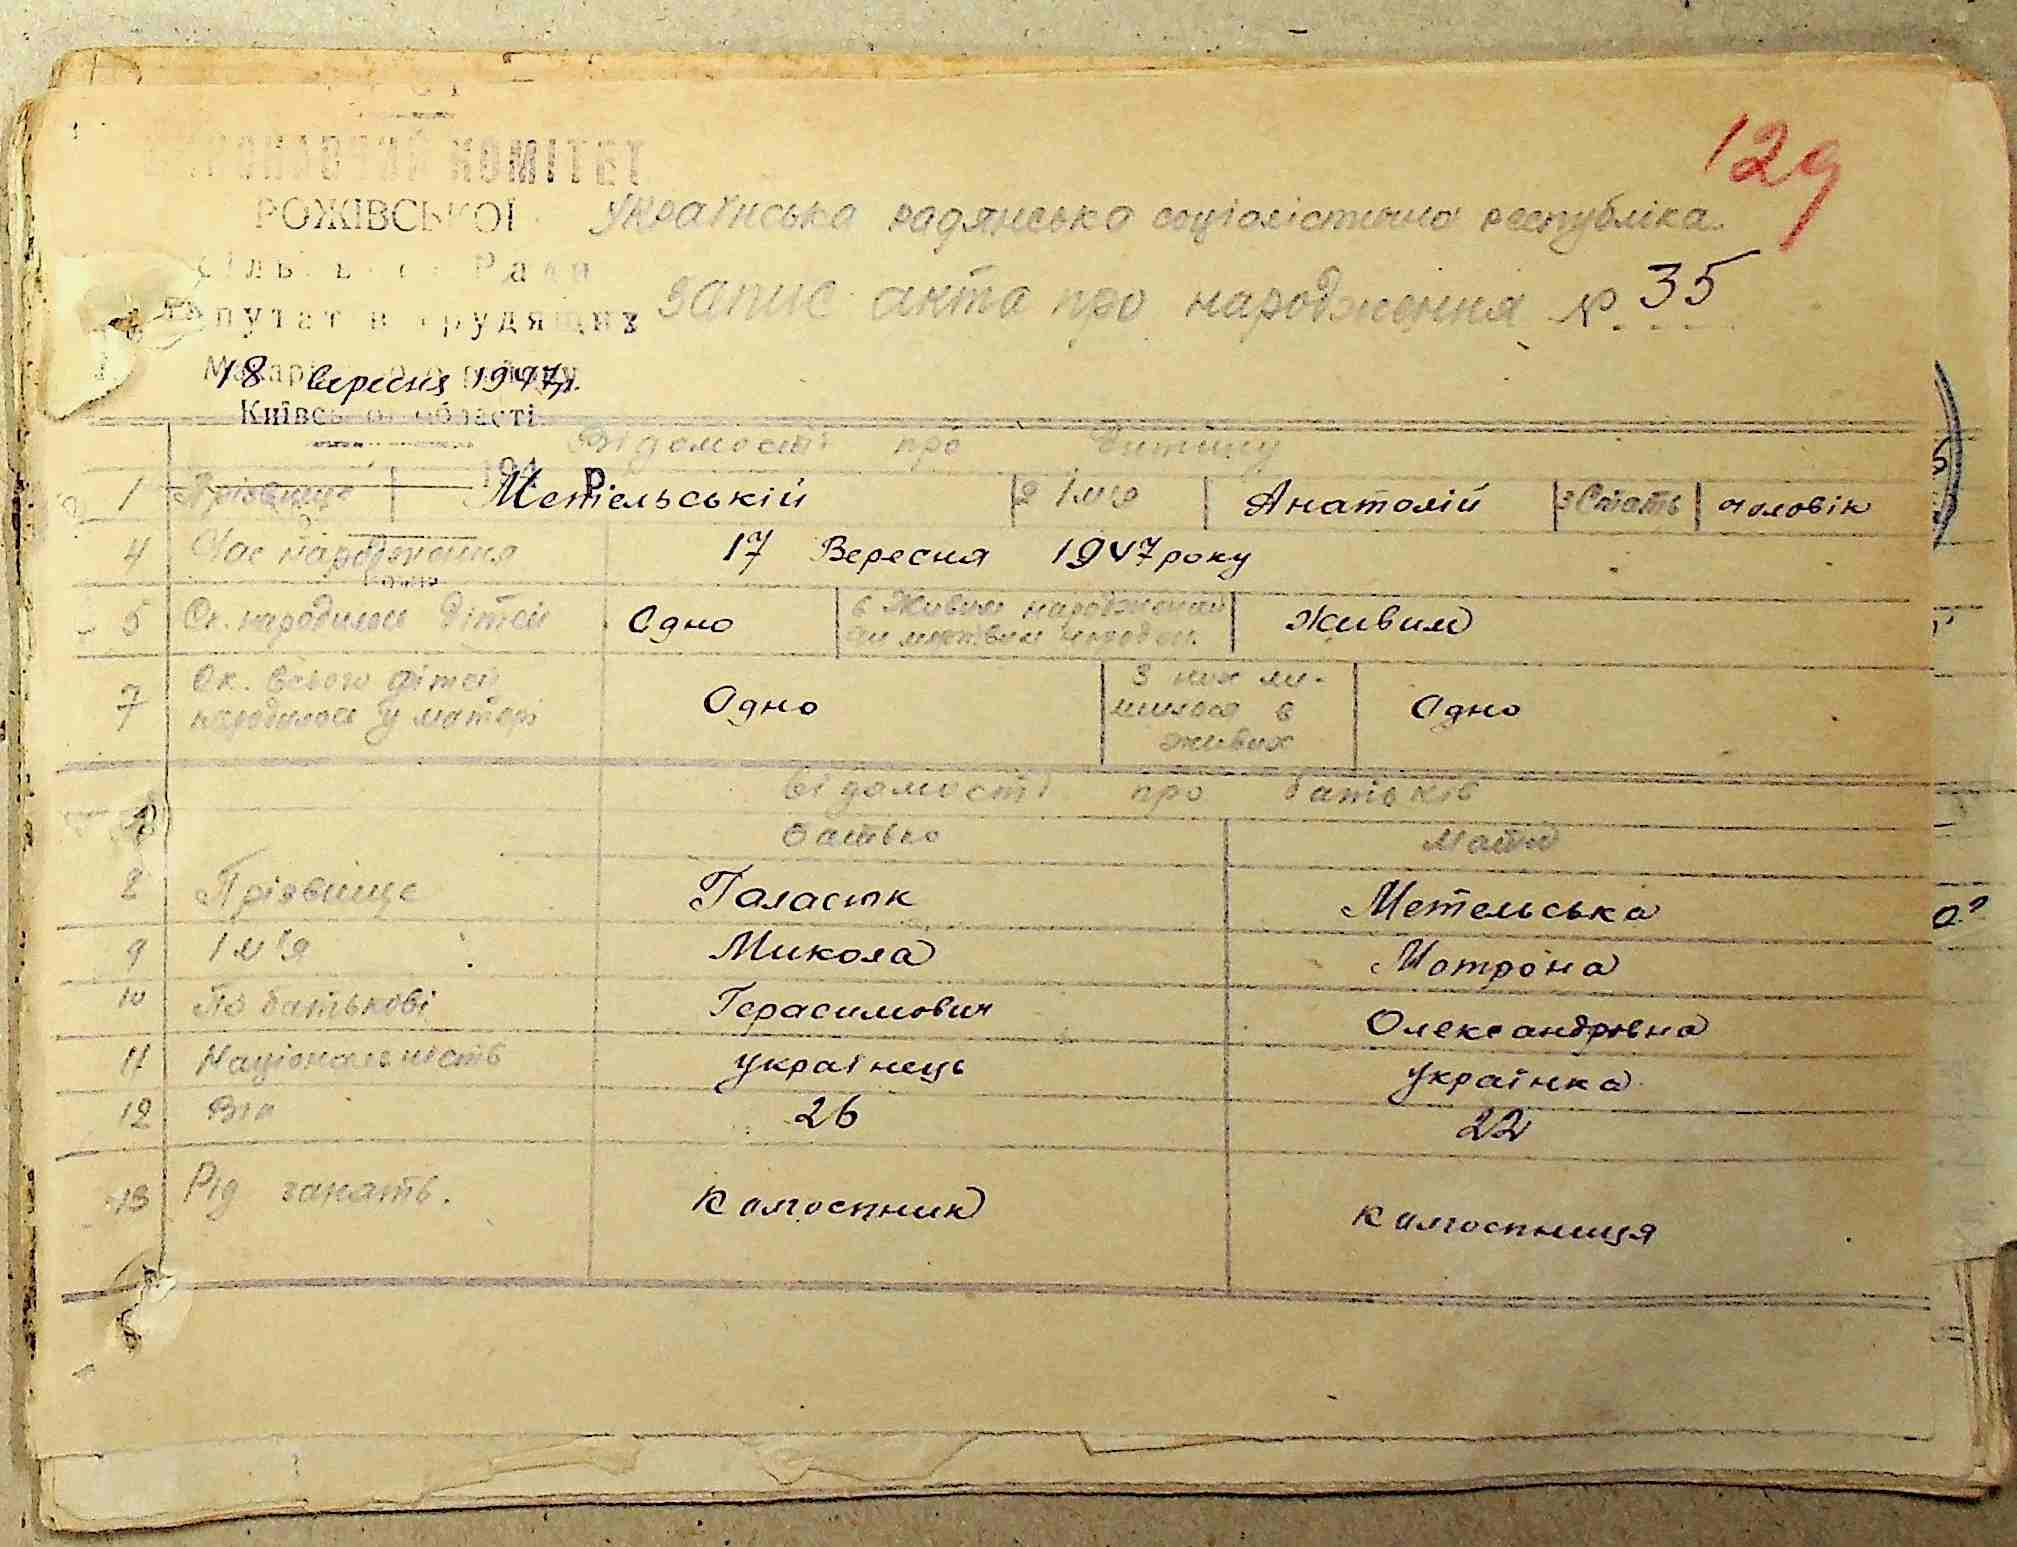 129
КОМІТЕТ
РОЖІВСЬКОЇ
Українська радянська соціалістична республіка.
Ради
запис акта про народження № 35
18 вересня 1947р.
Київської області
Відомості про дитину
1 Прізвище Метельській 2 Імя Анатолій 3 Стать чоловік
4 Час народження 17 Вересня 1947 року
5 Ск. народилось дітей Одно 6 Живим народженний чи мертвим народж. Живим
7 Ск. всього дітей народилось у матері Одно З них лишилося в живих Одно
відомості про батьків
батько Мати
8 Прізвище Галасюк Метельська
9 Ім'я Микола Мотрона
10 По батькові Герасимович Олександровна
11 Національність українець українка
12 Вік 26 22
13 Рід занять. Колгоспник колгоспниця